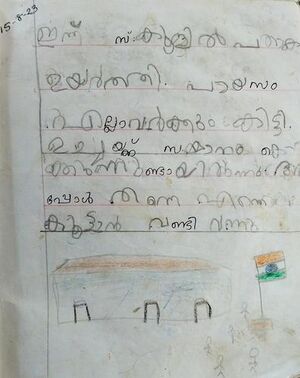 15-8-23
ഇന്ന് സ്കൂളിൽ പതാക
ഉയർത്തി. പായസം
എല്ലാവർക്കും കിട്ടി.
ഉച്ചയ്ക്ക്

പ്പോൾ തന്നെ എന്നെ
കൂട്ടാൻ വണ്ടി വന്നു